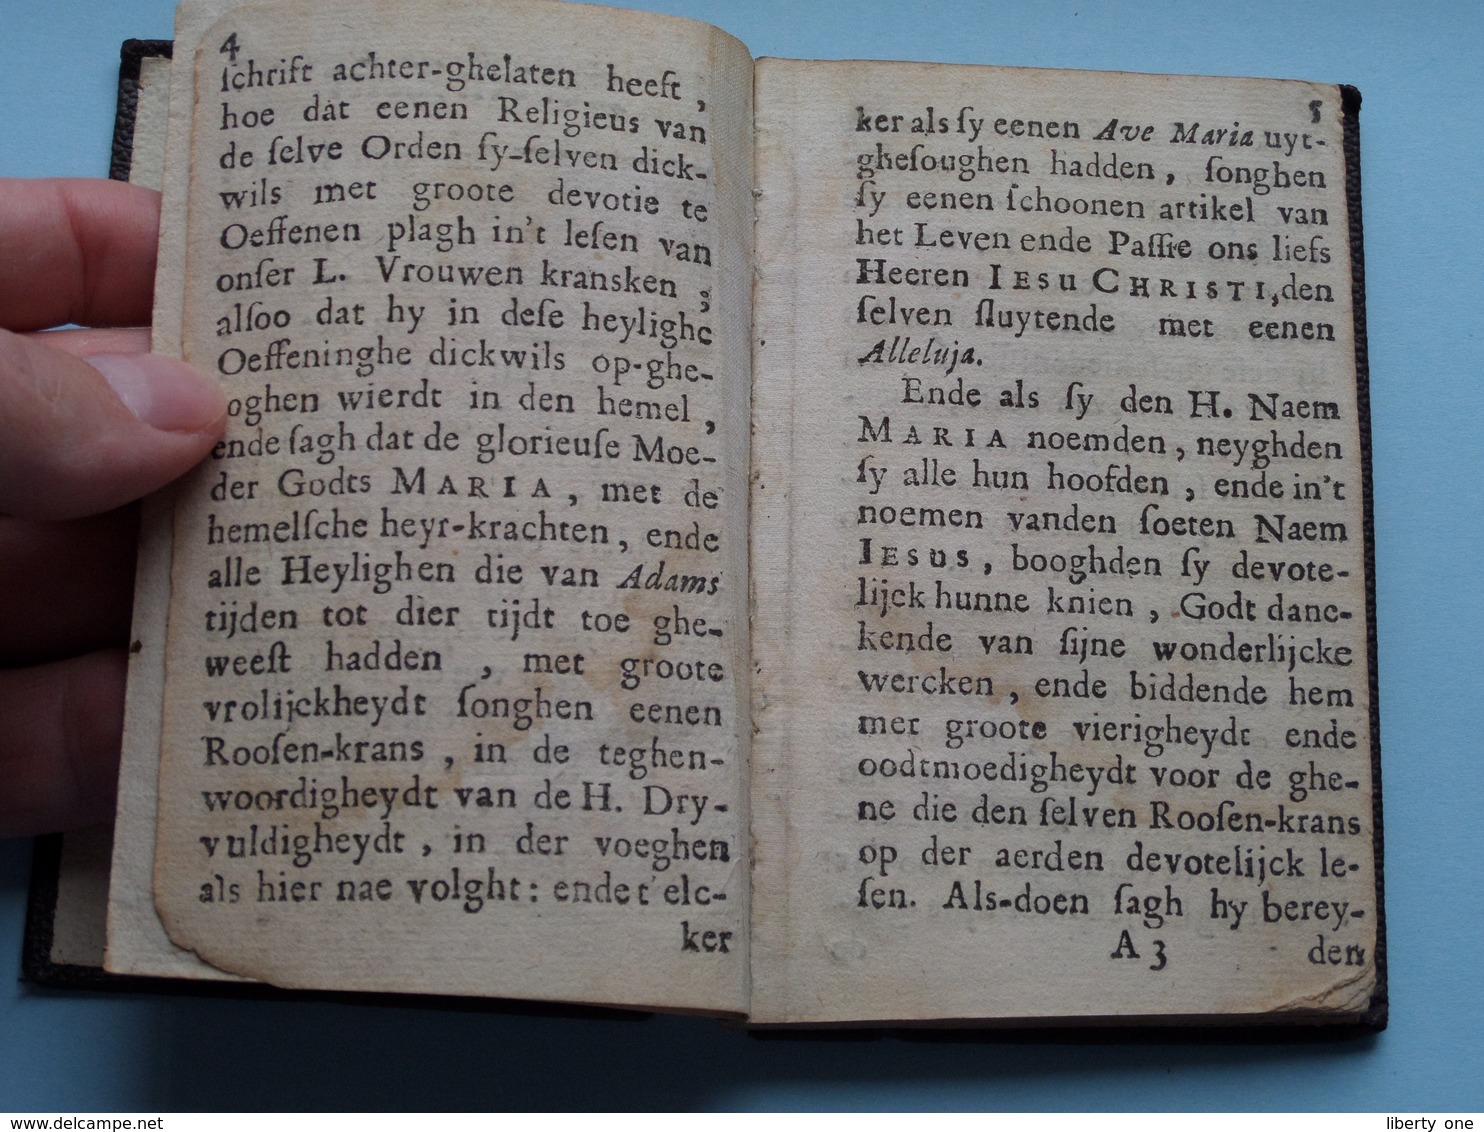 4
ſchrift achter-ghelaten heeft,
hoe dat eenen Religieus van
de ſelve Orden ſy-ſelven dick-
wils met groote devotie te
Oeffenen plagh in't leſen van
onſer L. Vrouwen kransken;
alſoo dat hy in deſe heylighe
Oeffeninghe dickwils op-ghe-
toghen wierdt in den hemel,
ende ſagh dat de glorieuſe Moe-
der Godts MARIA, met de
hemelſche heyr-krachten, ende
alle Heylighen die van Adams
tijden tot dier tijdt toe ghe-
weeſt hadden, met groote
vrolijckheydt ſonghen eenen
Rooſen-krans, in de teghen-
woordigheydt van de H. Dry-
vuldigheydt, in der voeghen
als hier nae volght: ende t'elc-
ker
5
ker als ſy eenen Ave Maria uyt-
gheſoughen hadden, ſonghen
ſy eenen ſchoonen artikel van
het Leven ende Paſſie ons liefs
Heeren IESU CHRISTI, den
ſelven ſluytende met eenen
Alleluja.
Ende als ſy den H. Naem
MARIA noemden, neyghden
ſy alle hun hoofden, ende in't
noemen vanden ſoeten Naem
IESUS, booghden ſy devote-
lijck hunne knien, Godt danc-
kende van ſijne wonderlijcke
wercken, ende biddende hem
met groote vierigheydt ende
oodtmoedigheydt voor de ghe-
ne die den ſelven Rooſen-krans
op der aerden devotelijck le-
ſen. Als-doen ſagh hy berey-
A 3 den
liberty one